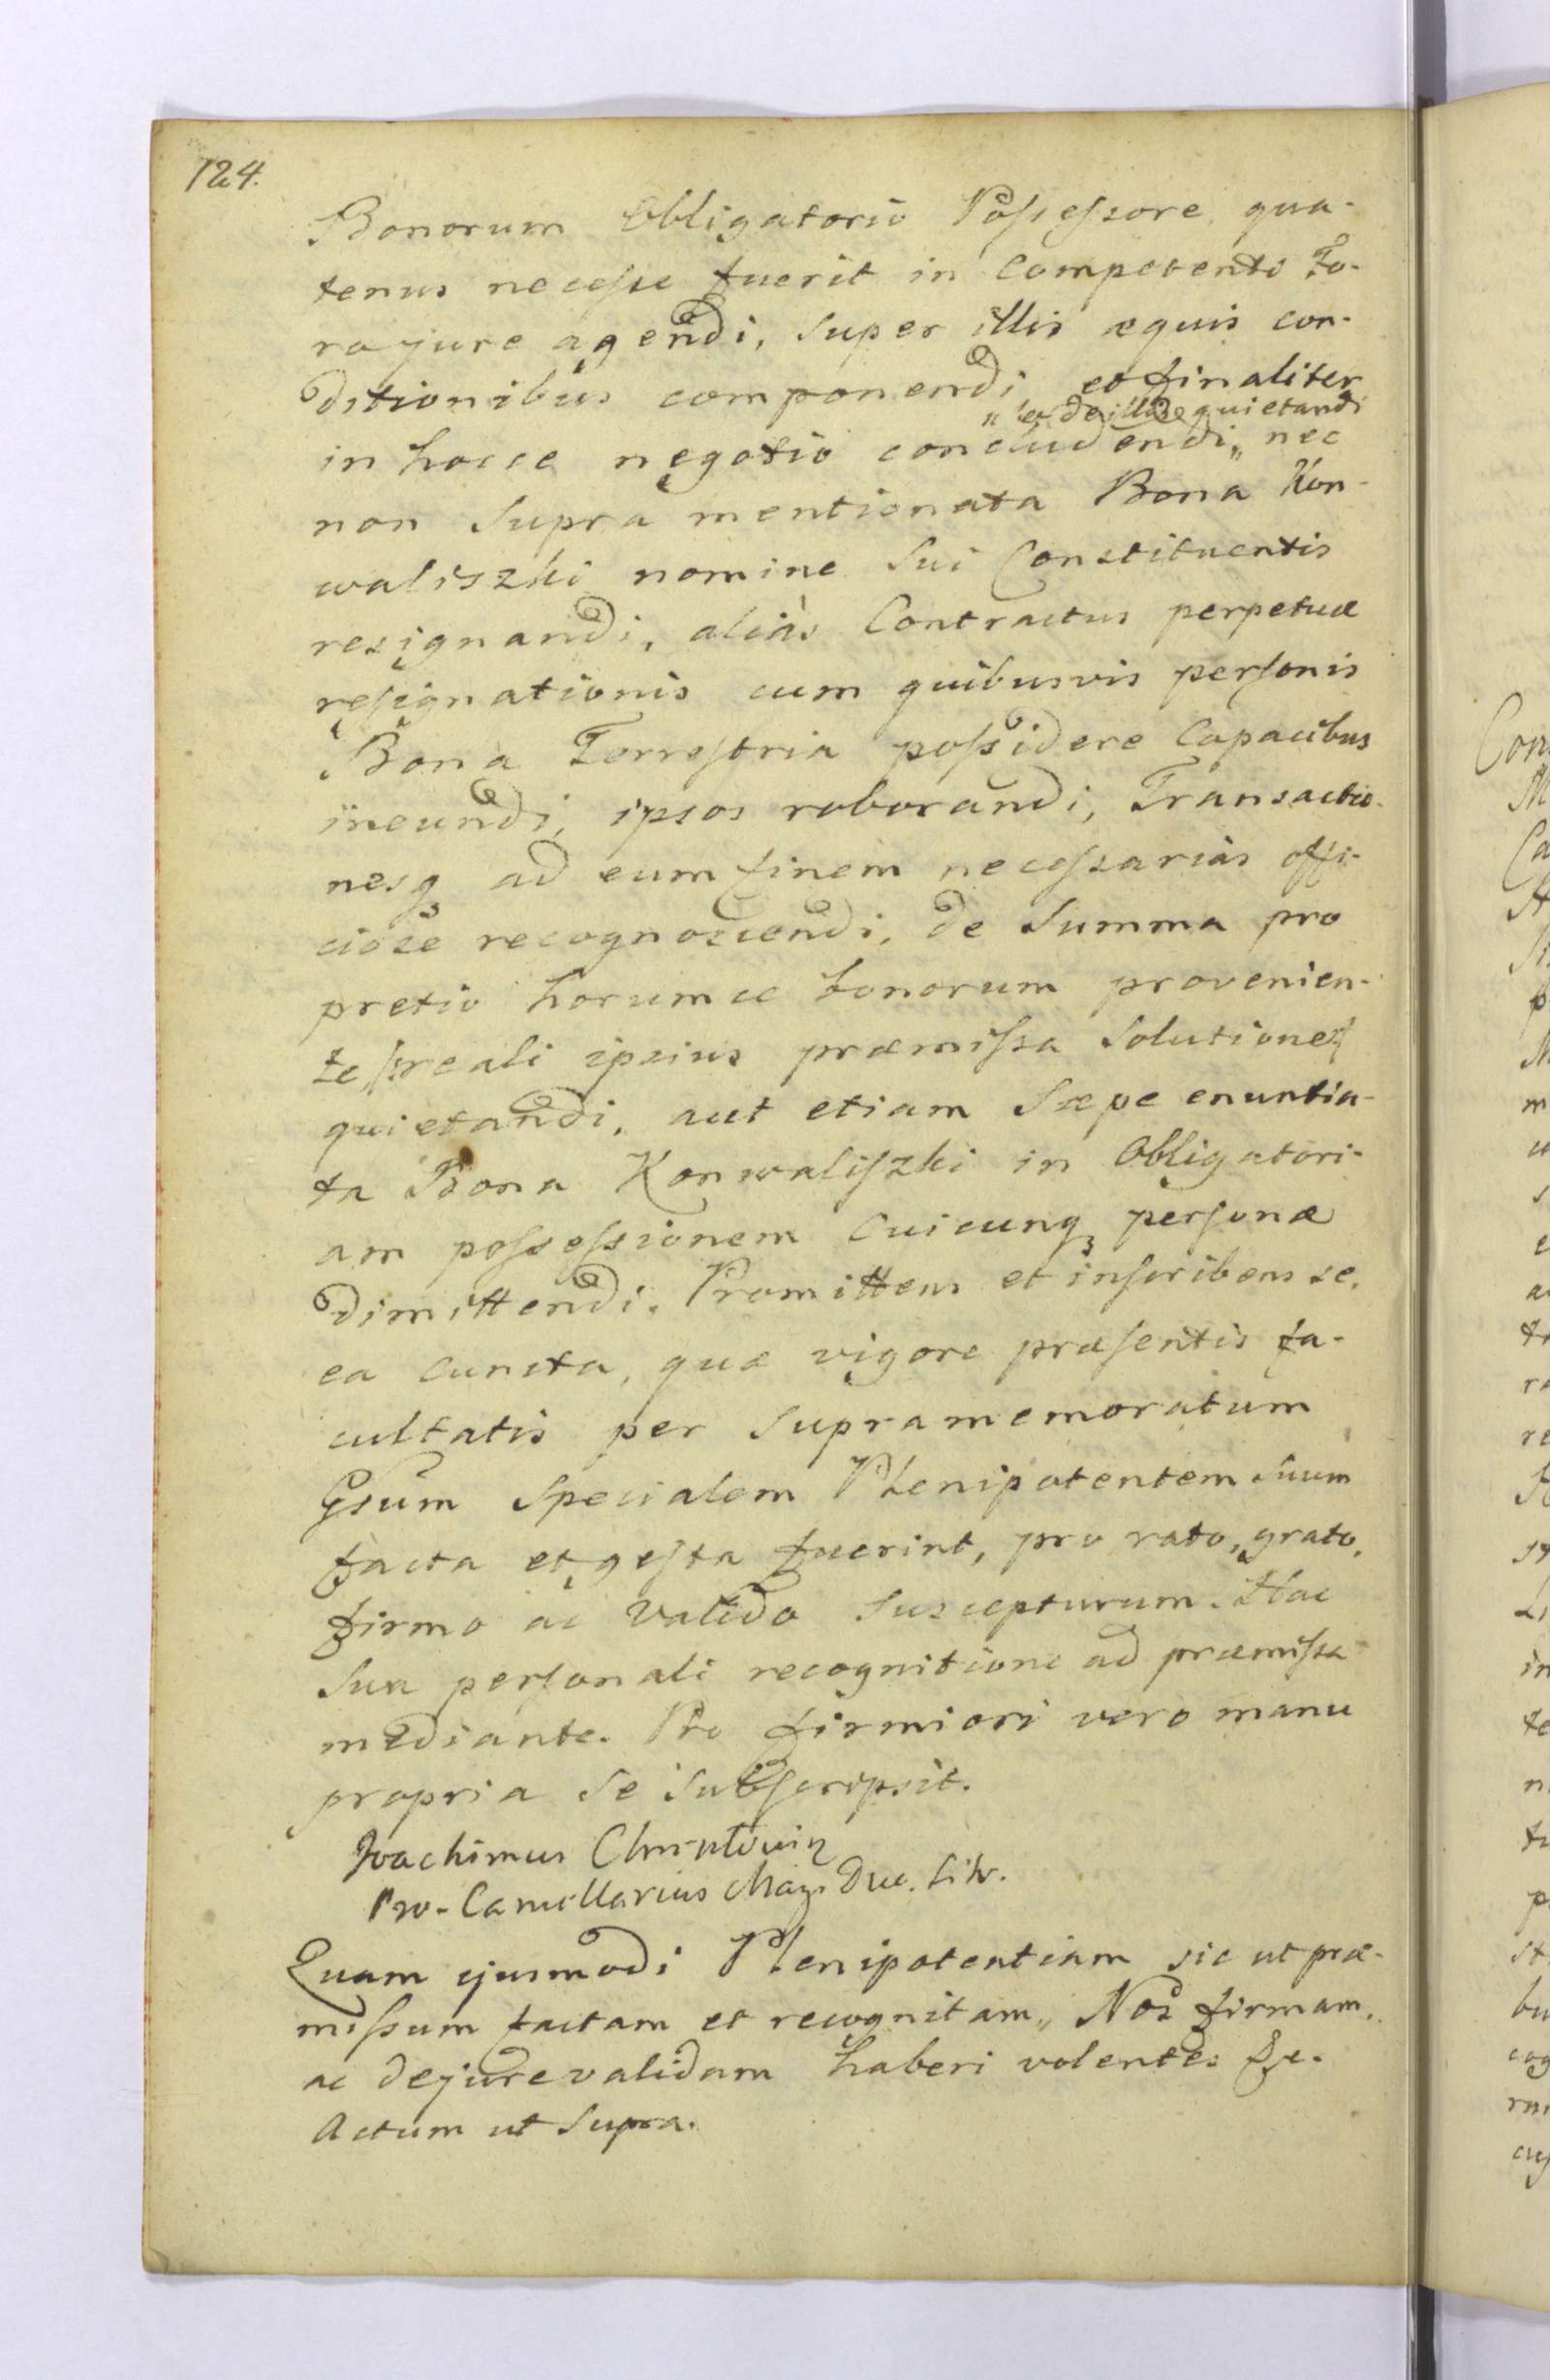 124.
Bonorum Obligatorio Possessore qua-
tenus necesse fuerit in Competenti Fo-
ro jure agendi, super illis æquis con-
ditionibus componendi et finaliter
" et de illis quietandi
in hocce negotio concludendi „ nec
non supra mentionata Bona Kon-
waliszki nomine sui Constituentis
resignandi, alias Contractus perpetuæ
resignationis cum quibusvis personis
Bona Terrestria possidere Capacibus
ineundi, ipsos roborandi, Transactio-
nesq ad eum finem necessarias offi-
ciose recognoscendi, de Summa pro
pretio horumce bonorum provenien-
te reali ipsius præmissa Solutione
quietandi, aut etiam Sæpe enuntia-
ta Bona Konwaliszki in Obligatori-
am possessionem Cuicunq personæ
dimittendi. Promittens et inscribens se,
ea cuncta, quæ vigore præsentis fa-
cultatis per supramemoratum
Gsum Specialem Plenipotentem suum
facta et gesta fuerint, pro rato, grato,
firmo ac Valido suscepturum. Hac
Sua personali recognitione ad præmissa
mediante. Pro firmiori vero manu
propria se subscripsit.
Joachimus
Pro-Cancellarius Mag. Duc. Litv.
Quam ejusmodi Plenipotentiam sic ut præ-
missum factam et recognitam, Nos firmam,
ac de jure validam haberi volentes &c.
Actum ut Supra.